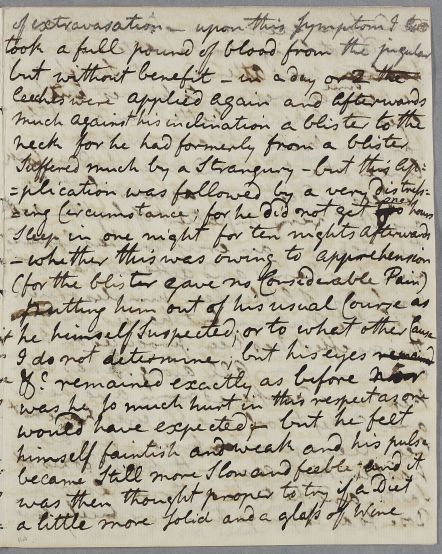 of extravasation – upon this Symptom I
took a full pound of blood from the jugular
but without benefit – in a day or 2 the
leeches were applied again and afterwards
much against his inclination a blister to the
neck for he had formerly from a blister
Suffered much by a Strangury – but this Ap:
=plication was followed by a very distress=
=ing Circumstance; for he did not get hours
Sleep in one night for ten nights afterwards
– whether this was owing to apprehension
(for the blister gave no Considerable Pain)
putting him out of his usual Course as
he himself Suspected, or to what other Cause
I do not determine, but his eyes
&c remained exactly as before nor
was he so much hurt in this respect as one
would have expected – but he felt
himself faintish and weak and his pulse
became Still more Slow and feeble, and it
was then thought proper to try if a Diet
a little more Solid and a glass of Wine